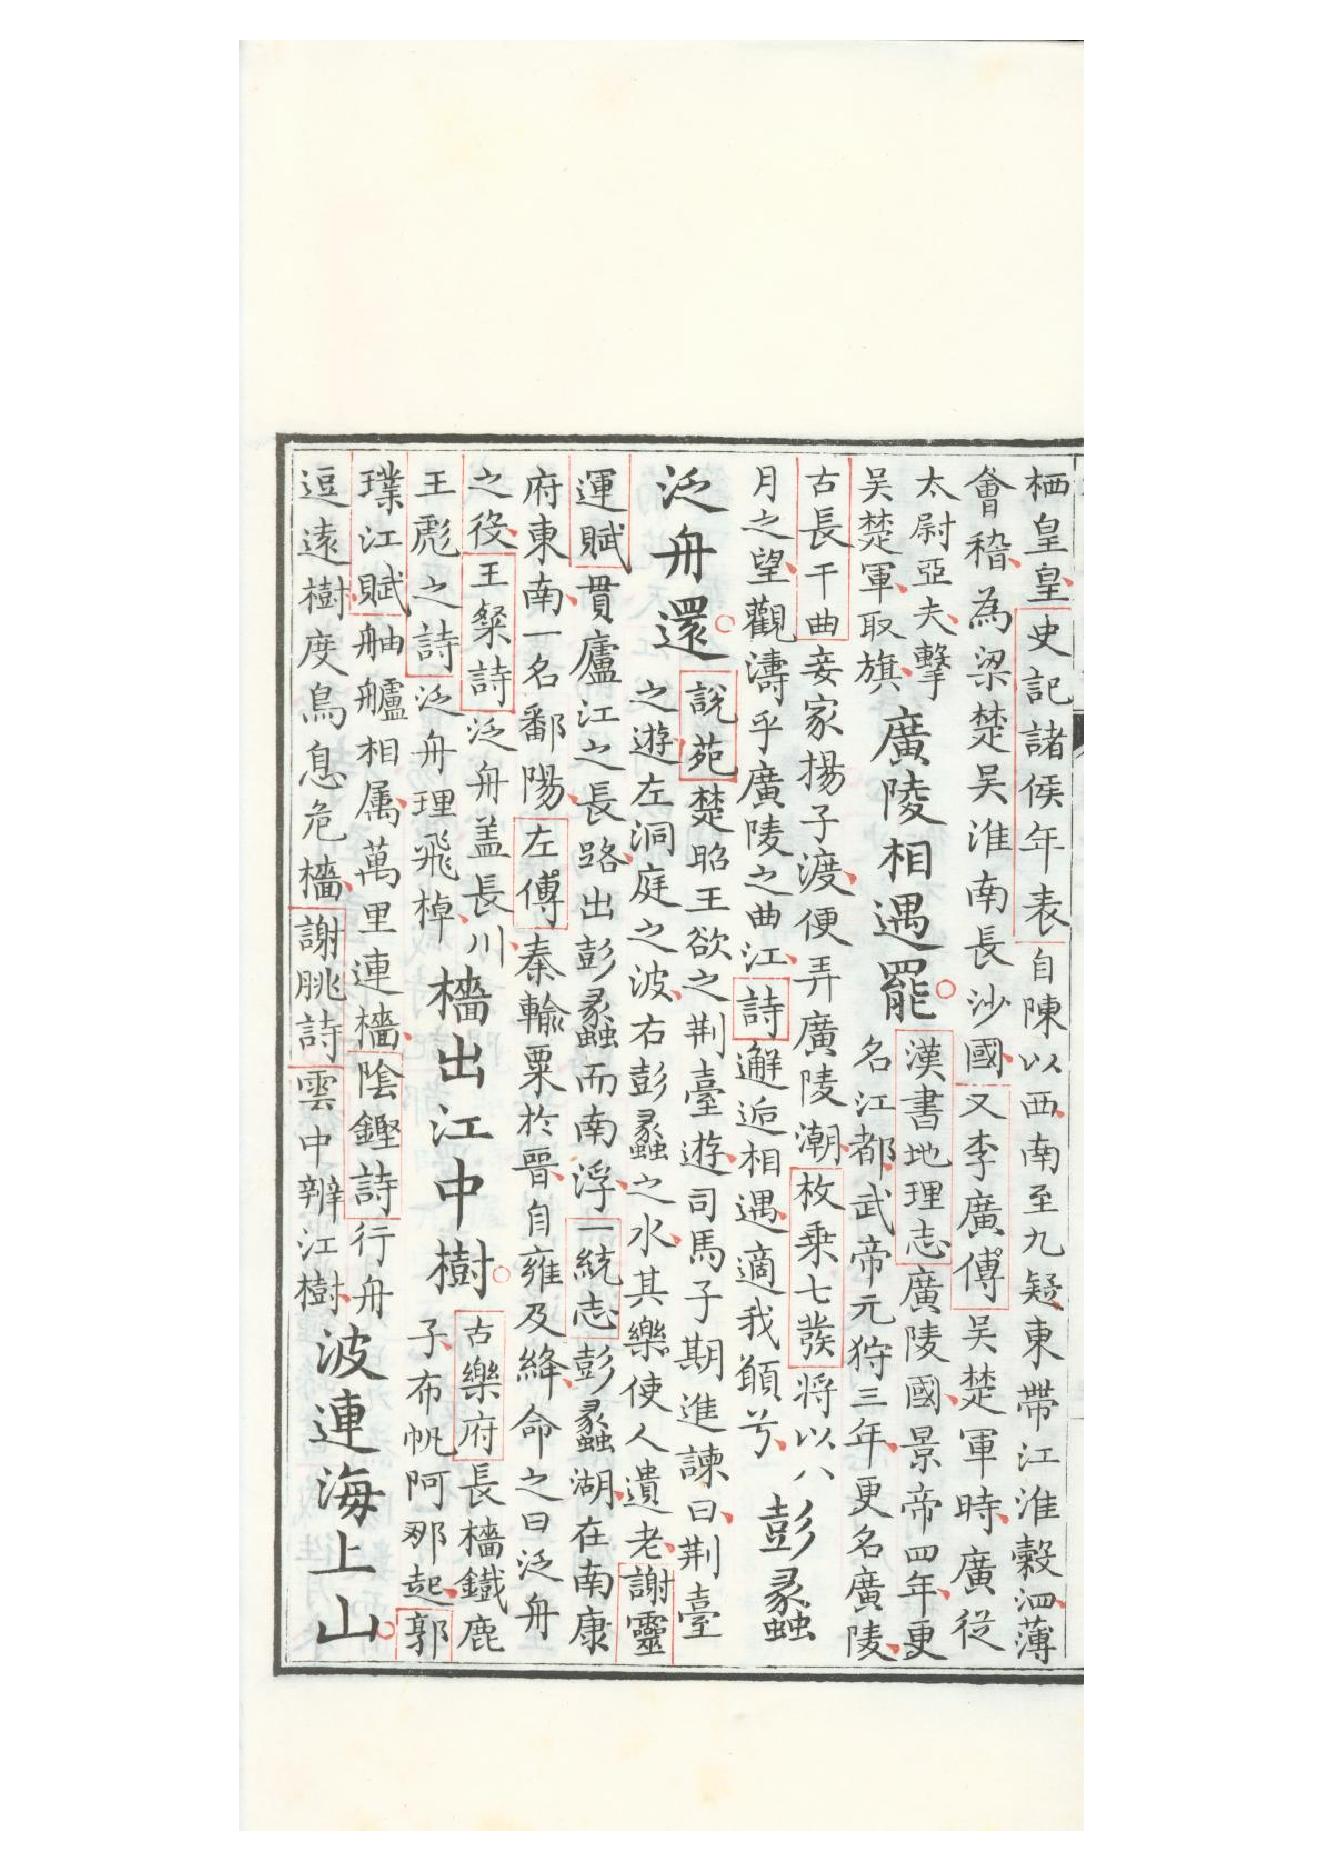 栖皇皇史記諸侯年表自陳以西南至九疑東帶江淮穀泗薄
會稽為梁楚吳淮南長沙國又李廣傳吳楚軍時廣從
太尉亞夫擊
吳楚軍取旗
廣陵相遇罷
漢書地理志廣陵國景帝四年更
名江都武帝元狩三年更名廣陵
古長干曲妾家揚子渡便弄廣陵潮枚乗七發將以八
月之望觀濤乎廣陵之曲江詩邂逅相遇適我願兮
彭蠡
泛舟還
說苑楚昭王欲之荆臺遊司馬子期進諫曰荆臺
之遊左洞庭之波右彭蠡之水其樂使人遺老謝靈
運賦貫廬江之長路出彭蠡而南浮一統志彭蠡湖在南康
府東南一名鄱陽左傳秦輸粟於晉自雍及絳命之曰泛舟
之役王粲詩泛舟盖長川
王彪之詩泛舟理飛棹
檣出江中樹
古樂府長檣鐵鹿
子布帆阿那起郭
璞江賦舳艫相属萬里連檣陰鏗詩行舟
逗遠樹度鳥息危檣謝朓詩雲中辨江樹
波連海上山